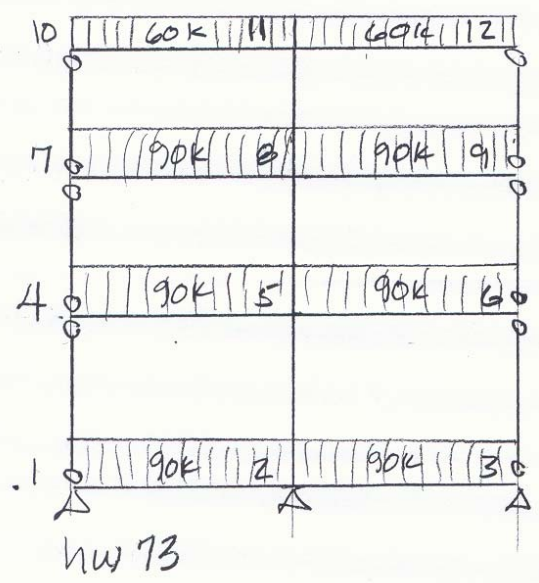 10 60K 11 60K 12
7 90K 8 90K 9
4 90K 5 90K 6
.1 90K 2 90K 3
hw 73